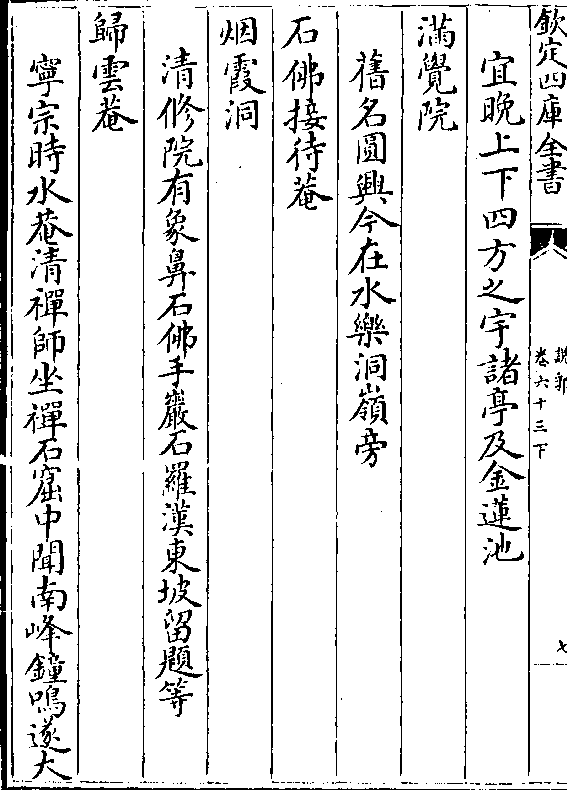 欽定四庫全書
說郛
卷六十三下
七
宜晚上下四方之宇諸亭及金蓮池
滿覺院
舊名圓興今在水樂洞嶺旁
石佛接待菴
烟霞洞
清修院有象鼻石佛手巖石羅漢東坡留題等
歸雲菴
寧宗時水菴清禪師坐禪石窟中聞南峰鐘鳴遂大